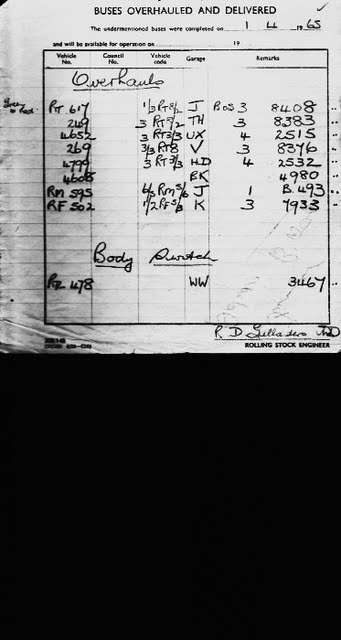 BUSES OVERHAULED AND DELIVERED
The undermentioned buses were completed on 1 4 1965
and will be available for operation on 19
Vehicle No. Council No. Vehicle code Garage Remarks
Overhauls
Green to Red. RT 617 1/3 RT8/2 J BOS 3 8408
249 3 RT5/2 TH 3 8383
4652 3 RT3/3 UX 4 2515
269 3/3 RT8 V 3 8376
4799 3 RT3/3 HD 4 2532
4608 BK 4980
RM 595 6/5 RM5/6 J 1 B.493
RF 502 1/2 RF5/3 K 3 7933
Body Switch
478 WW 3467
ROLLING STOCK ENGINEER